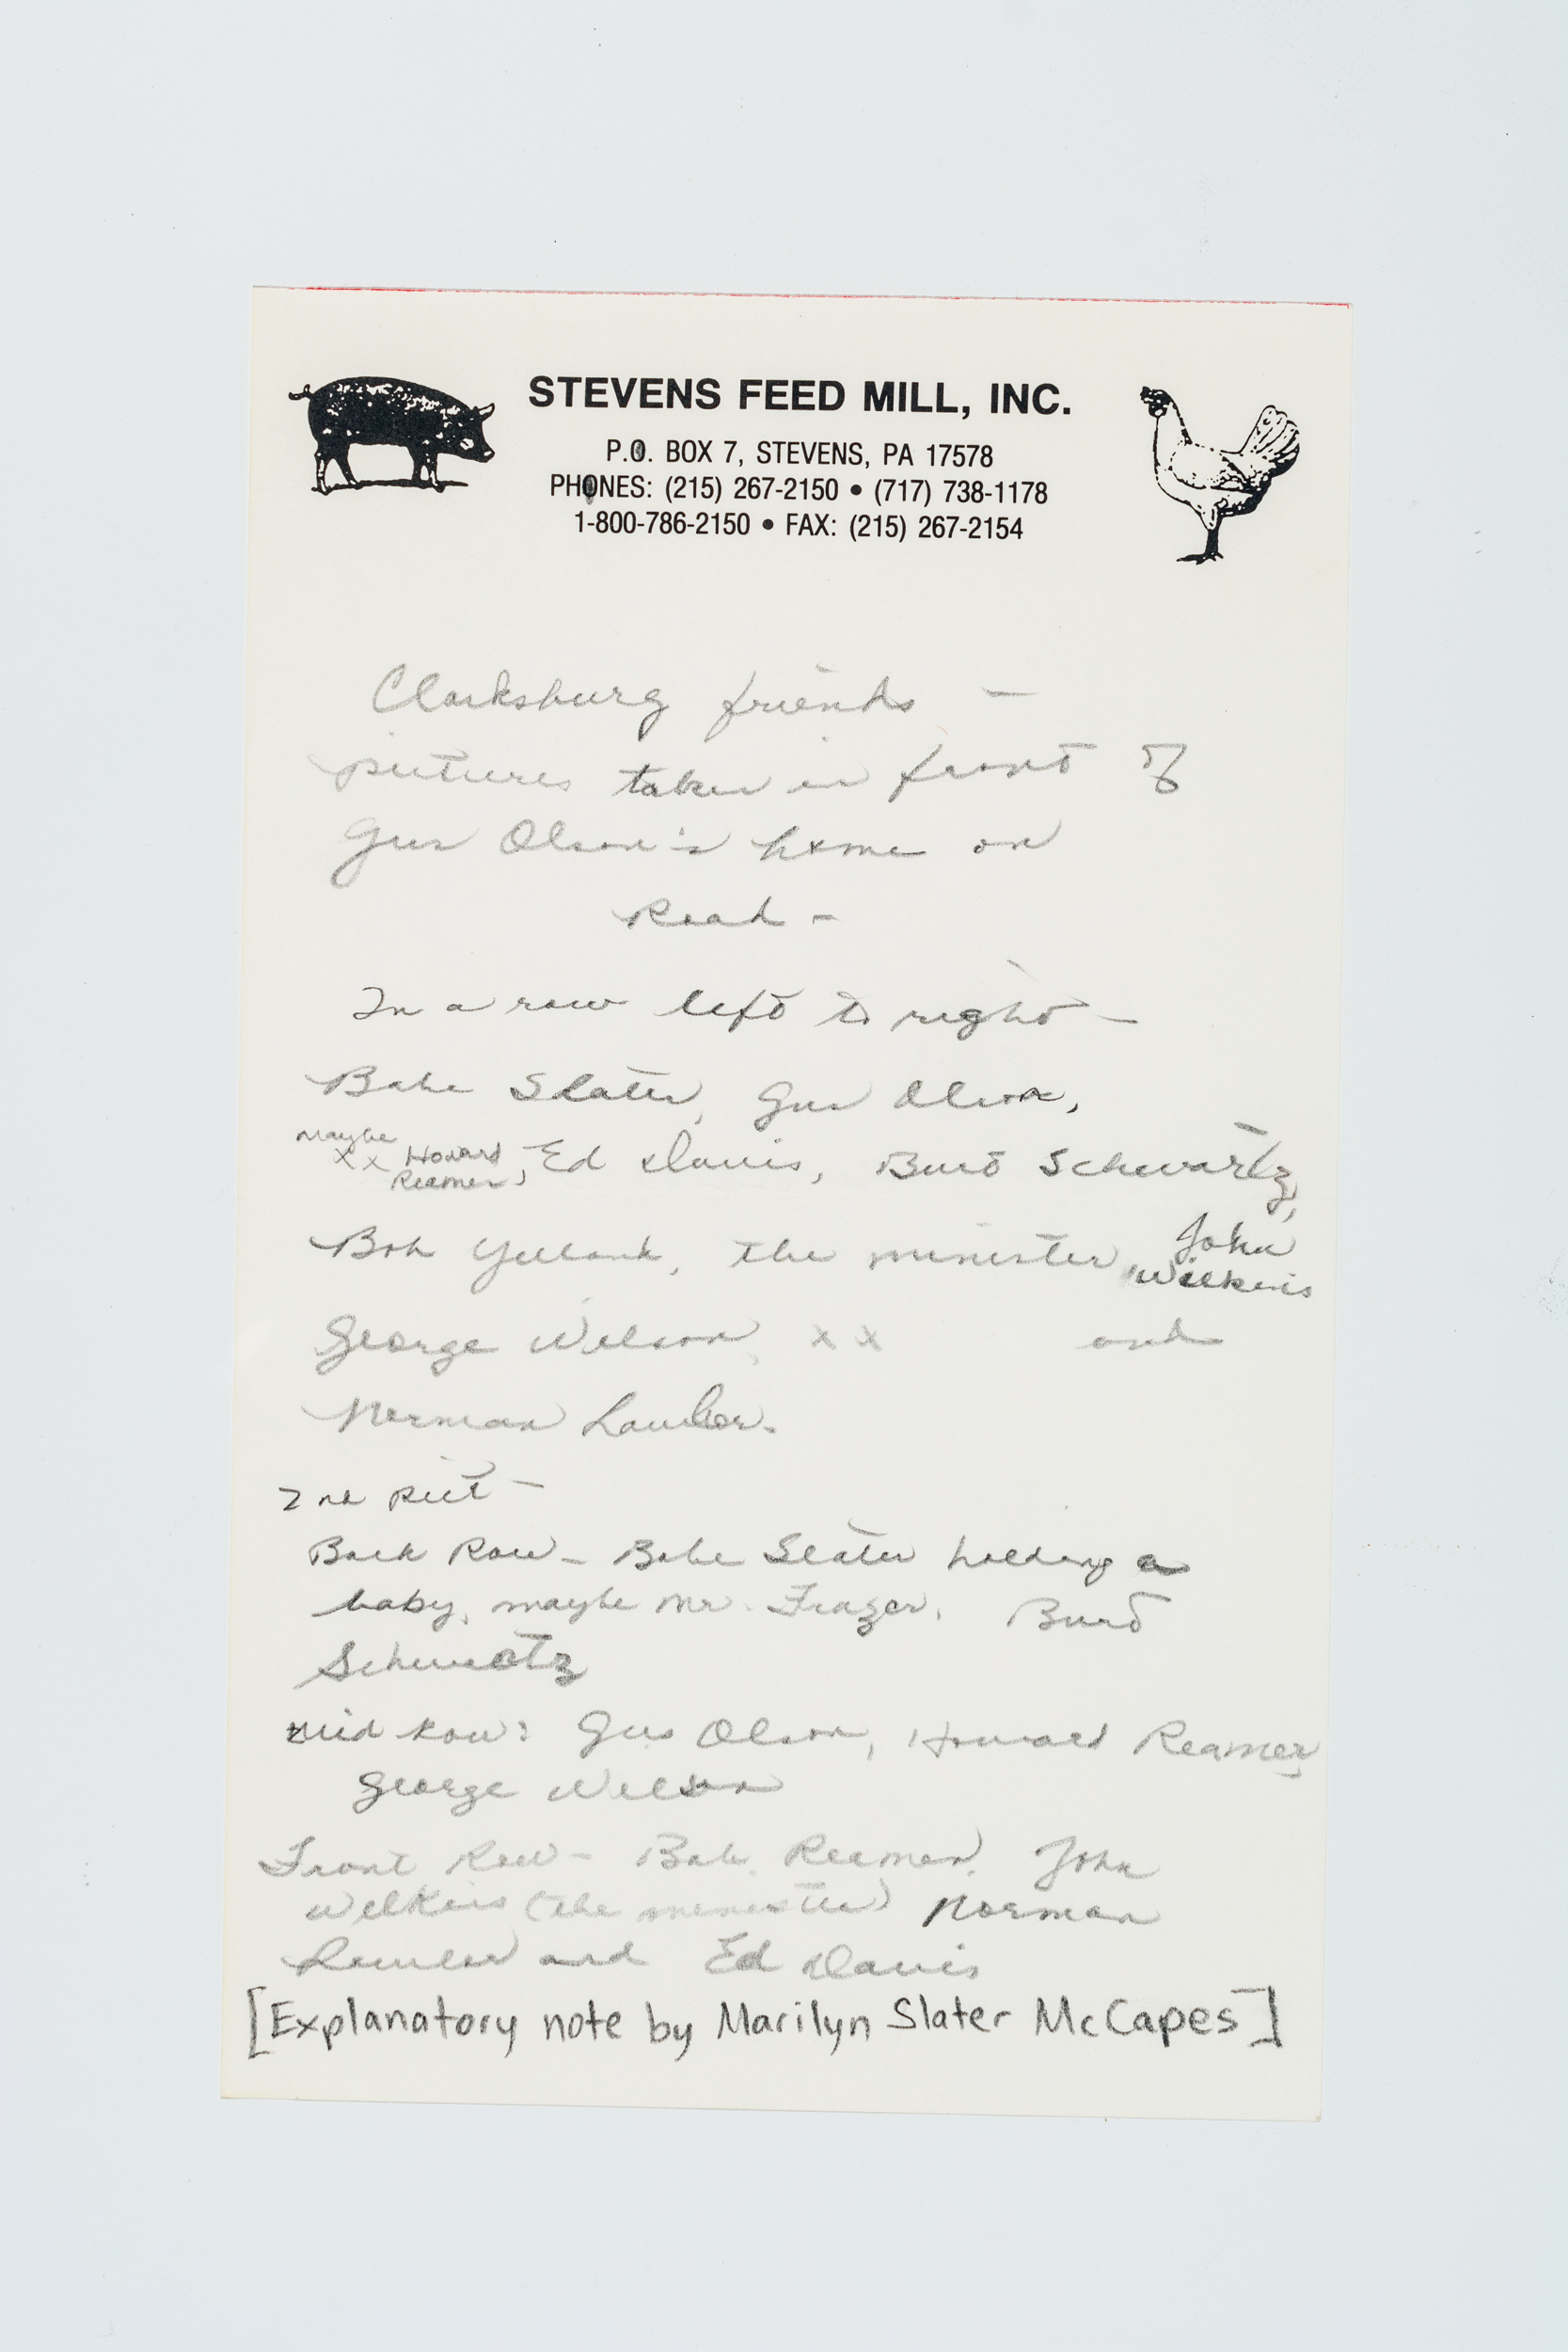 STEVENS FEED MILL, INC.
P.O. BOX 7, STEVENS, PA 17578
PHONES: (215) 267-2150 • (717) 738-1178
1-800-786-2150 • FAX: (215) 267-2154
Clarksburg friends —
pictures taken in front of
Gus Olson's home on
Road -
In a row left to right —
Babe Slater, Gus Olson,
maybe
xx Howard Reamer, Ed Davis, Burt Schwartz,
Bob, the minister, John Wilkins
George Wilson, xx and
Norman Lauber.
2nd pict —
Back Row - Babe Slater holding a
baby, maybe Mr. Frazer, Burt
Schwartz
mid row: Gus Olson, Howard Reamer,
George Wilson
Front Row - Reamer, John
Wilkins (the minister) Norman
Lauber and Ed Davis
[Explanatory note by Marilyn Slater McCapes]